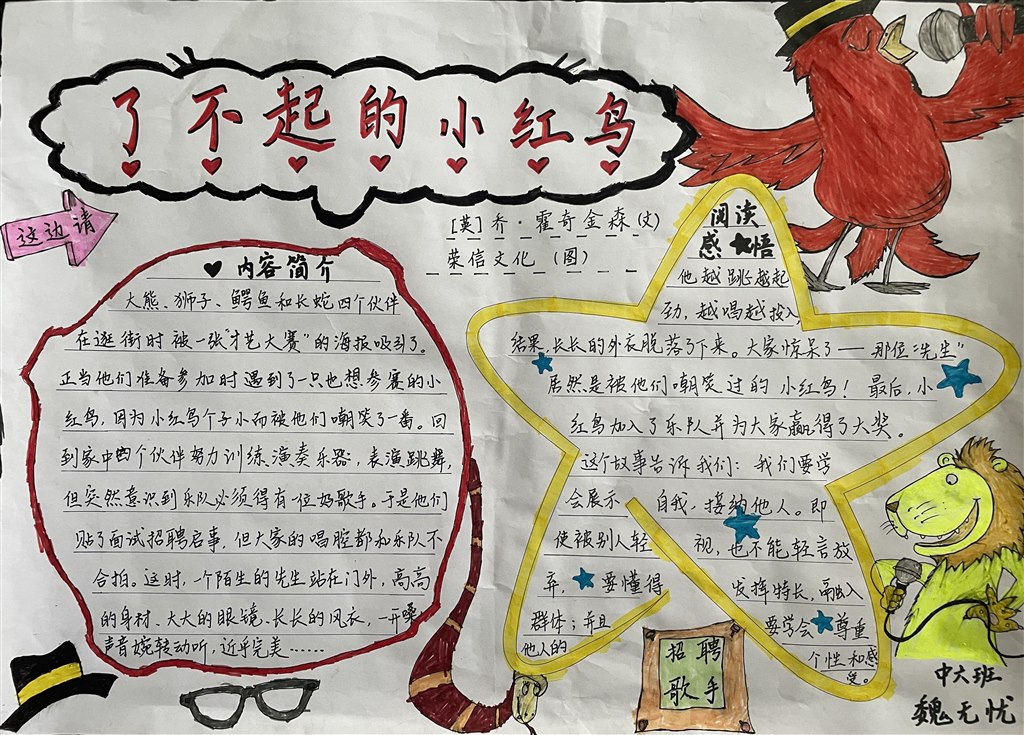 了不起的小红鸟
这边请
[英]乔·霍奇金森(文)
荣信文化(图)
内容简介
大熊、狮子、鳄鱼和长蛇四个伙伴
在逛街时被一张“才艺大赛”的海报吸引了。
正当他们准备参加时遇到了一只也想参赛的小
红鸟,因为小红鸟个子小而被他们嘲笑了一番。回
到家中四个伙伴努力训练演奏乐器,表演跳舞,
但突然意识到乐队必须得有一位好歌手。于是他们
贴了面试招聘启事,但大家的唱腔都和乐队不
合拍。这时,一个陌生的先生站在门外,高高
的身材、大大的眼镜、长长的风衣,一开嗓,
声音婉转动听,近乎完美……
阅读
感悟
他越跳越起
劲,越唱越投入,
结果,长长的外衣脱落了下来。大家惊呆了——那位“先生”
居然是被他们嘲笑过的小红鸟!最后,小
红鸟加入了乐队并为大家赢得了大奖。
这个故事告诉我们:我们要学
会展示自我,接纳他人。即
使被别人轻视,也不能轻言放
弃,要懂得发挥特长,融入
群体;并且要学会尊重
他人的个性和感
受。
招聘
歌手
中大班
魏无忧